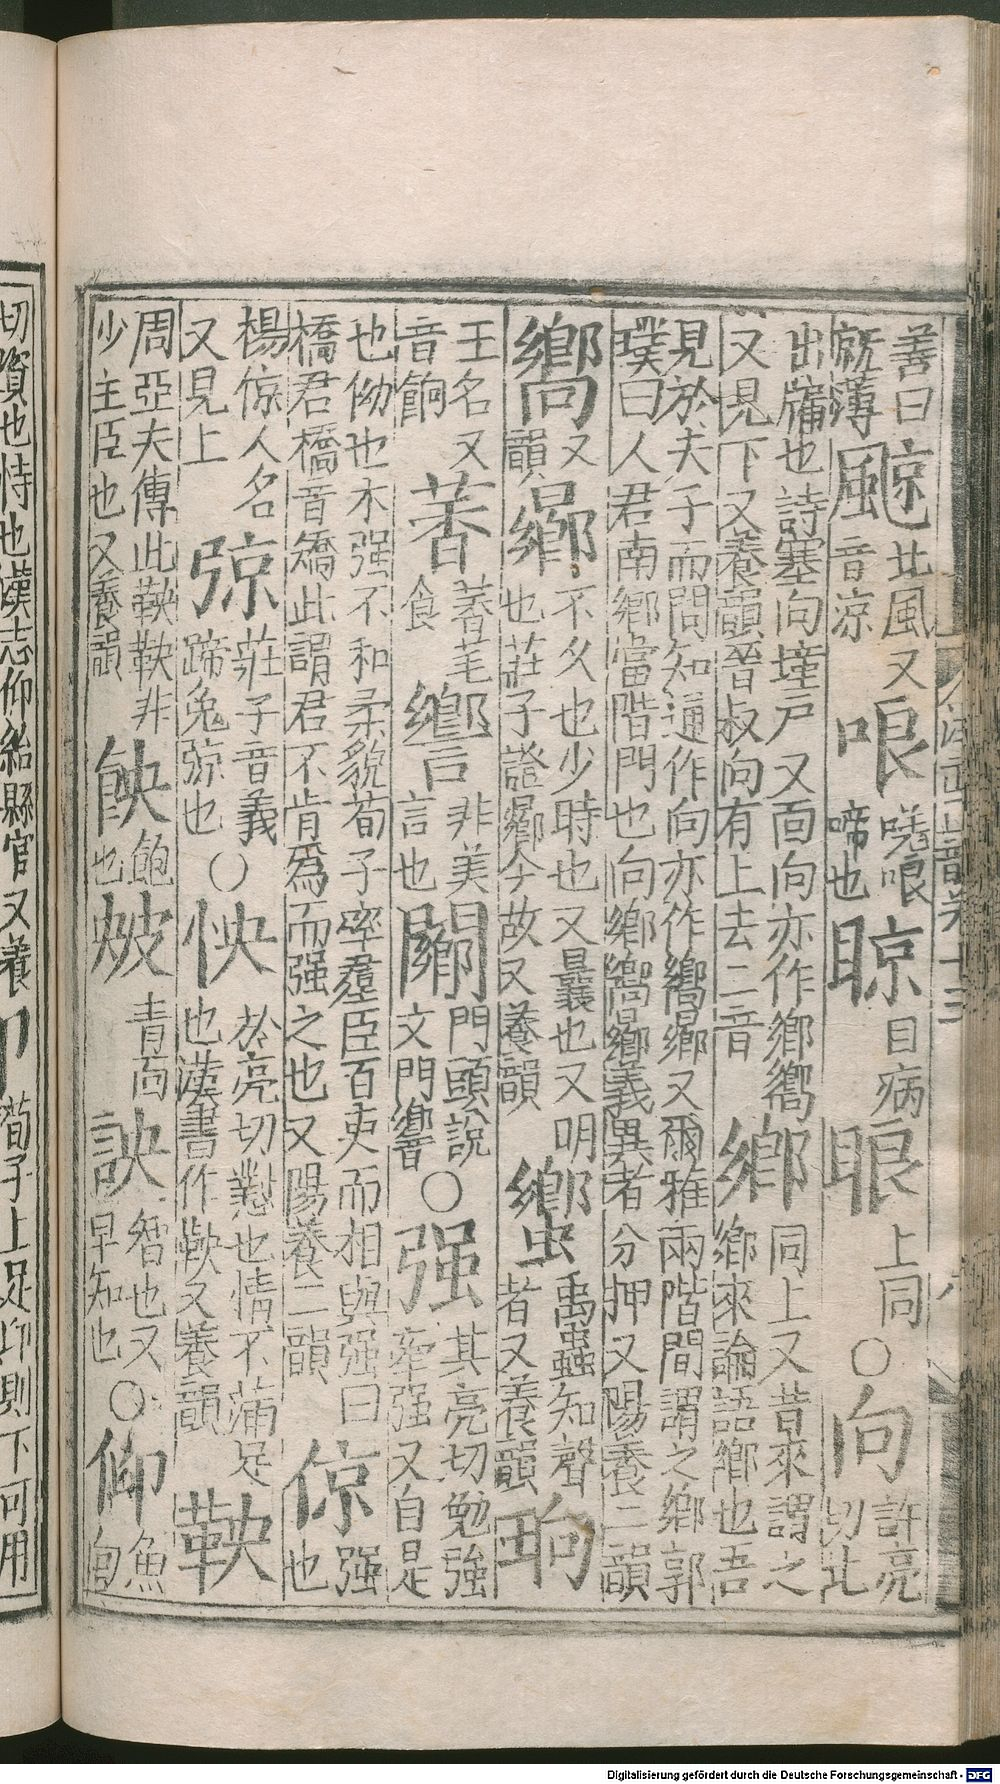 善曰
旣薄
䬙
北風又
音涼
哴
嗟哴
啼也
䁁
目病
䀶
上同
○
向
許亮
切北
出牖也詩塞向墐戶又面向亦作鄉嚮
又見下又養韻晉叔向有上去二音
鄉
同上又昔來謂之
鄉來論語鄉也吾
見於夫子而問知通作向亦作嚮鄉又爾雅兩階間謂之鄉郭
璞曰人君南鄉當階門也向鄉嚮鄉義異者分押又陽養二韻
嚮
又
韻
曏
不久也少時也又曩也又明
也莊子證曏今故又養韻
蠁
禹蟲知聲
者又養韻
珦
王名又
音餉
食
非美
言也
闀
門頭說
文門響
○
强
其亮切勉強
牽强又自是
也㑃也木强不和柔貌荀子率羣臣百吏而相與强曰
橋君橋音矯此謂君不肯爲而强之也又陽養二韻
倞
强
也
楊倞人名
又見上
弶
莊子音義
蹄兔弶也
○
怏
於亮切懟也情不滿足
也漢書作鞅又養韻
鞅
周亞夫傳此鞅鞅非
少主臣也又養韻
䬬
飽
也
青面
詇
智也又
早知也
○
仰
魚
向
切資也恃也漢志仰給縣官又養
卬
荀子上足卬則下可用
Digitalisierung gefördert durch die Deutsche Forschungsgemeinschaft - DFG